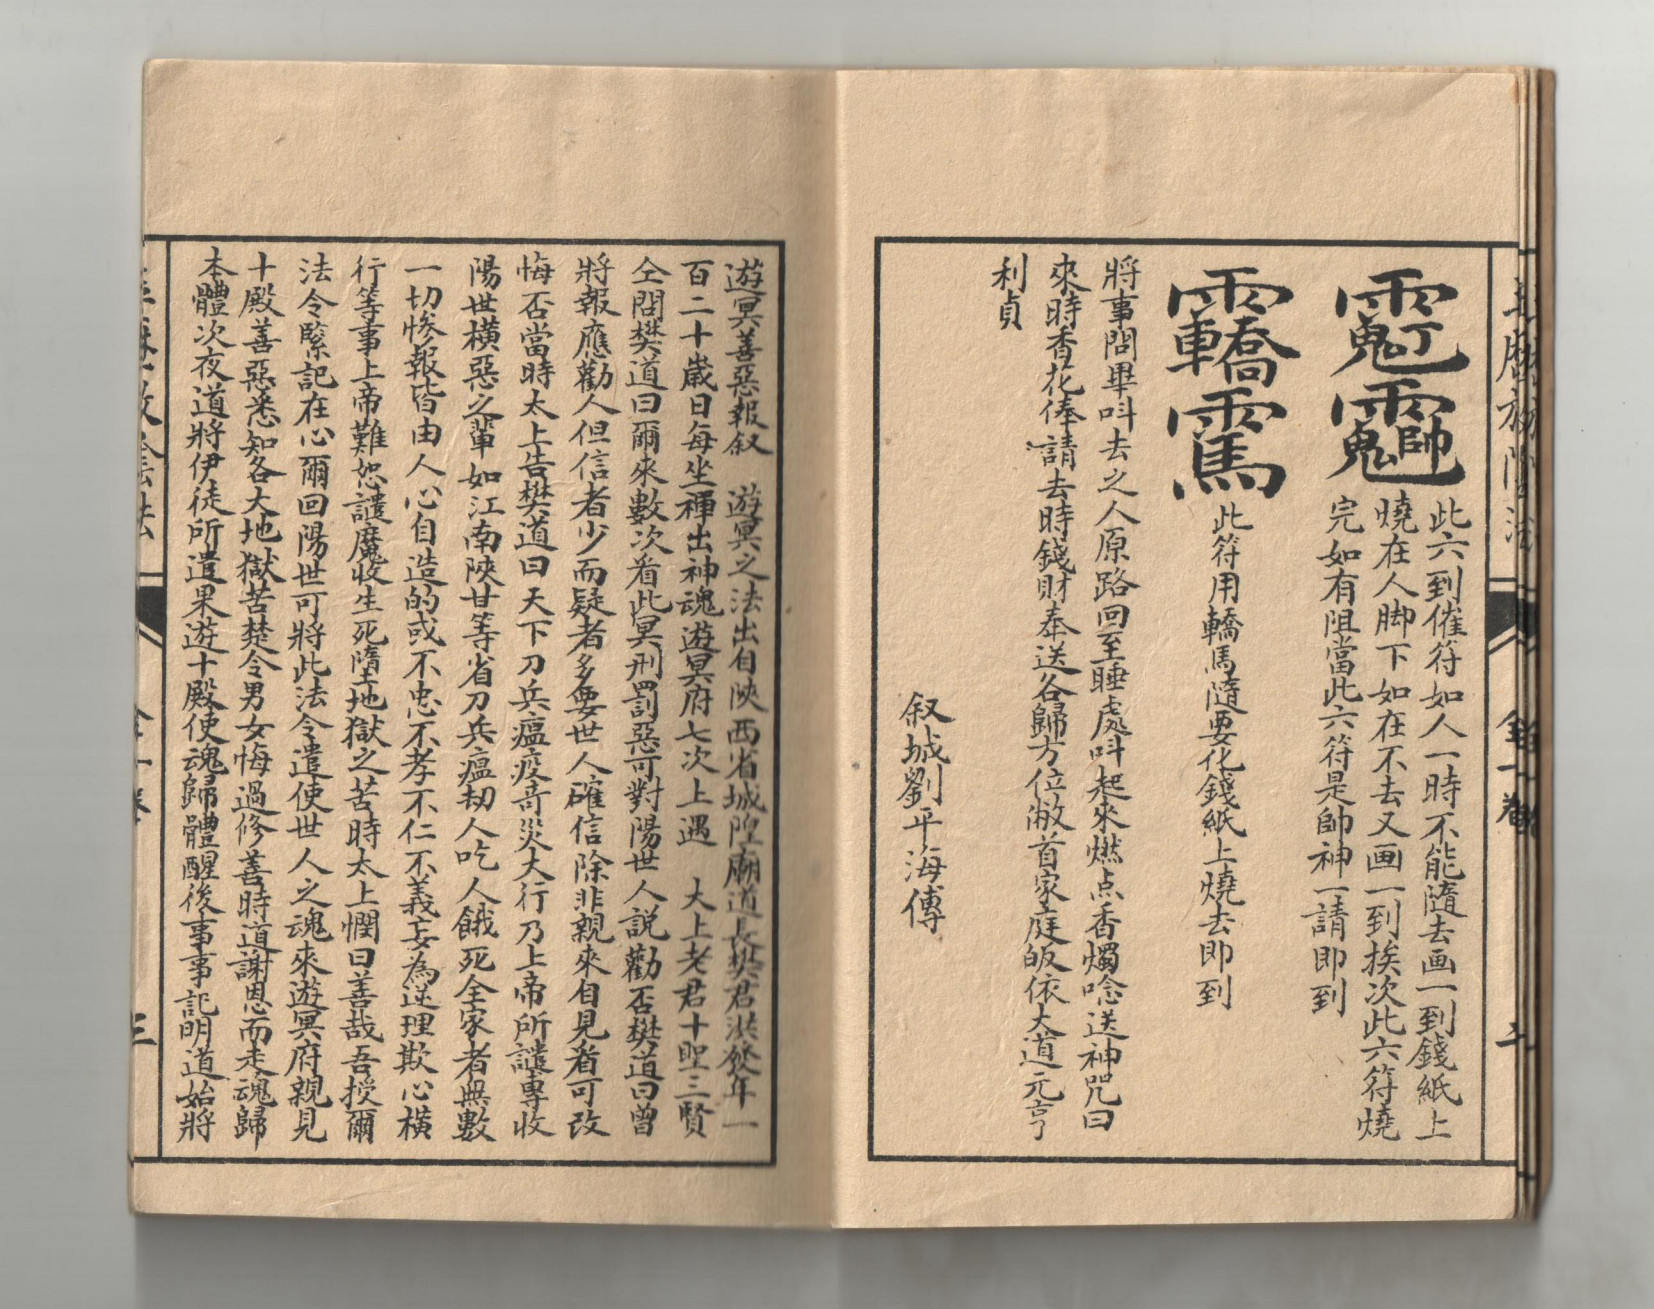 此六到催符如人一時不能隨去画一到錢紙上
燒在人脚下如在不去又画一到挨次此六符燒
完如有阻當此六符是帥神一請即到
此符用轎馬隨要化錢紙上燒去即到
將事問畢呌去之人原路回至睡處呌起來燃点香燭唸送神咒曰
來時香花俸請去時錢財奉送各歸方位敝首家庭皈依大道元亨
利貞
叙城劉平海傳
遊冥善惡報叙 遊冥之法出自陝西省城隍廟道長樊君洪發年一
百二十歲日每坐禪出神魂遊冥府七次上遇 大上老君十聖三賢
仝問樊道曰爾來數次看此冥刑罰惡可對陽世人説勸否樊道曰曾
將報應勸人但信者少而疑者多要世人確信除非親來自見看可改
悔否當時太上告樊道曰天下刀兵瘟疫奇災大行乃上帝所譴專收
陽世橫惡之輩如江南陝甘等省刀兵瘟劫人吃人餓死全家者無數
一切惨報皆由人心自造的或不忠不孝不仁不義妄為逆理欺心橫
行等事上帝難恕譴魔收生死墮地獄之苦時太上憫曰善哉吾授爾
法令緊記在心爾回陽世可將此法令遣使世人之魂來遊冥府親見
十殿善惡悉知各大地獄苦楚令男女悔過修善時道謝恩而走魂歸
本體次夜道將伊徒所遣果遊十殿使魂歸體醒後事事記明道始將
三